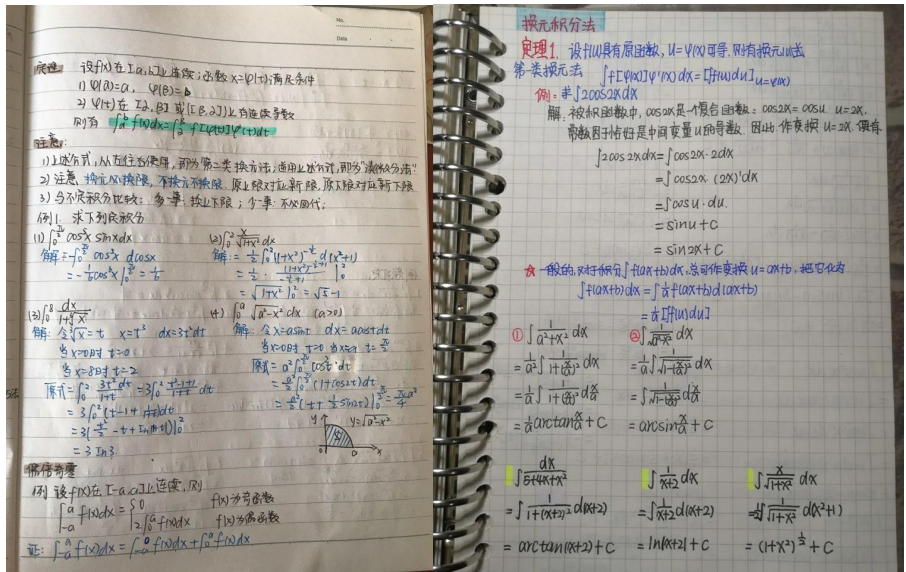 No.
Date
定理 设f(x)在[a,b]上连续;函数x=φ(t)满足条件
1) φ(α)=a, φ(β)=b
2) φ(t)在[α,β]或([β,α])上有连续导数
则有 ∫_a^b f(x)dx=∫ f[φ(t)]φ'(t)dt
注意:
1)上述公式,从左往右使用,即为第二类换元法;
2)注意 换元必换限,不换元不换限,原上限对应新上限,原下限对应新下限
3)与不定积分比较: 多一事:换上下限; 少一事:不必回代;
例1. 求下列定积分
(1) ∫_0^{π/2} cos⁵x sinxdx
解:=-∫_0^{π/2} cos⁵x dcosx
=-1/6cos⁶x|_0^{π/2}=1/6
(2) ∫_0^2 x/√(1+x²) dx
解:=1/2∫_0^2(1+x²)^{-1/2} d(x²+1)
=√(1+x²)|_0^2=√5-1
(3) ∫_0^8 dx/(1+³√x)
解: 令³√x=t x=t³ dx=3t²dt
当x=0时 t=0
当x=8时 t=2
原式=∫_0^2 3t²dt/(1+t)=3∫_0^2 (t²-1+1)/(1+t) dt
=3∫_0^2(t-1+1/(1+t))dt
=3(t²/2-t+ln|1+t|)|_0^2
=3ln3
(4) ∫_0^a √(a²-x²) dx (a>0)
解: 令x=asint dx=acostdt
当x=0时 t=0 当x=a t=π/2
原式=a²∫_0^{π/2}cos²t dt
=a²/2∫_0^{π/2}(1+cos2t)dt
=a²/2(t+1/2sin2t)|_0^{π/2}=π/4a²
y
y=√(a²-x²)
S
0 a x
偶倍奇零
例 设f(x)在[-a,a]上连续,则
∫_{-a}^a f(x)dx={0 f(x)为奇函数
2∫_0^a f(x)dx f(x)为偶函数
证: ∫_{-a}^a f(x)dx=∫_{-a}^0 f(x)dx+∫_0^a f(x)dx
换元积分法
定理1. 设f(u)具有原函数, u=φ(x)可导, 则有换元公式
第一类换元法 ∫f[φ(x)]φ'(x)dx=[∫f(u)du]_{u=φ(x)}
例: 求∫2cos2xdx
解: 被积函数中, cos2x是一个复合函数: cos2x=cosu. u=2x.
常数因子恰好是中间变量u的导数. 因此.作变换u=2x. 便有
∫2cos2xdx=∫cos2x·2dx
=∫cos2x·(2x)'dx
=∫cosu·du.
=sinu+C
=sin2x+C
☆ 一般的,对于积分∫f(ax+b)dx,总可作变换u=ax+b,把它化为
∫f(ax+b)dx=∫1/a f(ax+b)d(ax+b)
=1/a[∫f(u)du]
① ∫1/(a²+x²) dx
=1/a∫1/(1+(x/a)²) dx
=1/a∫1/(1+(x/a)²) dx/a
=1/a arctan x/a+C
② ∫1/√(a²-x²) dx
=1/a∫1/√(1-(x/a)²) dx
=∫1/√(1-(x/a)²) dx/a
=arcsin x/a+C
∫dx/(5+4x+x²)
=∫1/(1+(x+2)²) d(x+2)
=arctan(x+2)+C
∫1/(x+2) dx
=∫1/(x+2) d(x+2)
=ln|x+2|+C
∫x/√(1+x²) dx
=1/2∫1/√(1+x²) d(x²+1)
=(1+x²)^{1/2}+C